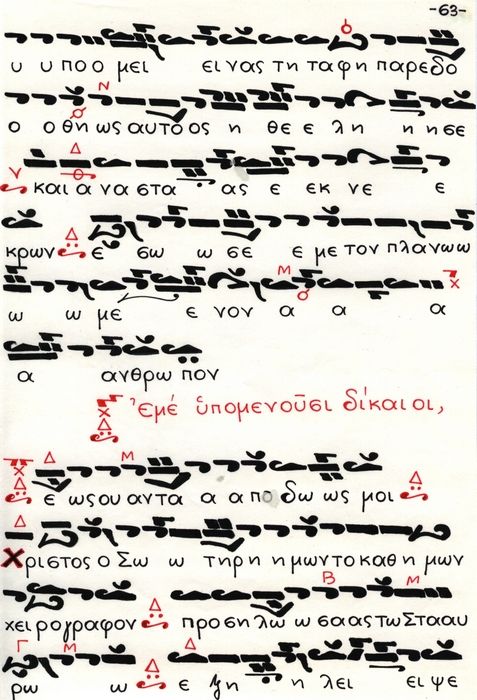 -63-
υ υ πο ο μει ει νας τη τα φη παρεδο
ο ο θη ως αυτο ος η θε ε λη η η σε
και α να στα ας ε εκ νε ε
κρων ε σω ω σε ε με τον πλανωω
ω ω με ε νον α α α
α ανθρω πον
Ἐμέ ὑπομενοῦσι δίκαιοι,
ε ως ου αντα α α πο δω ως μοι
Χριστος ο Σω ω τηρ η η μων το καθ η μων
χει ρογραφον προση λω ω σα ας τω Σταυ
ρω ω ε ξη η λει ει ψε